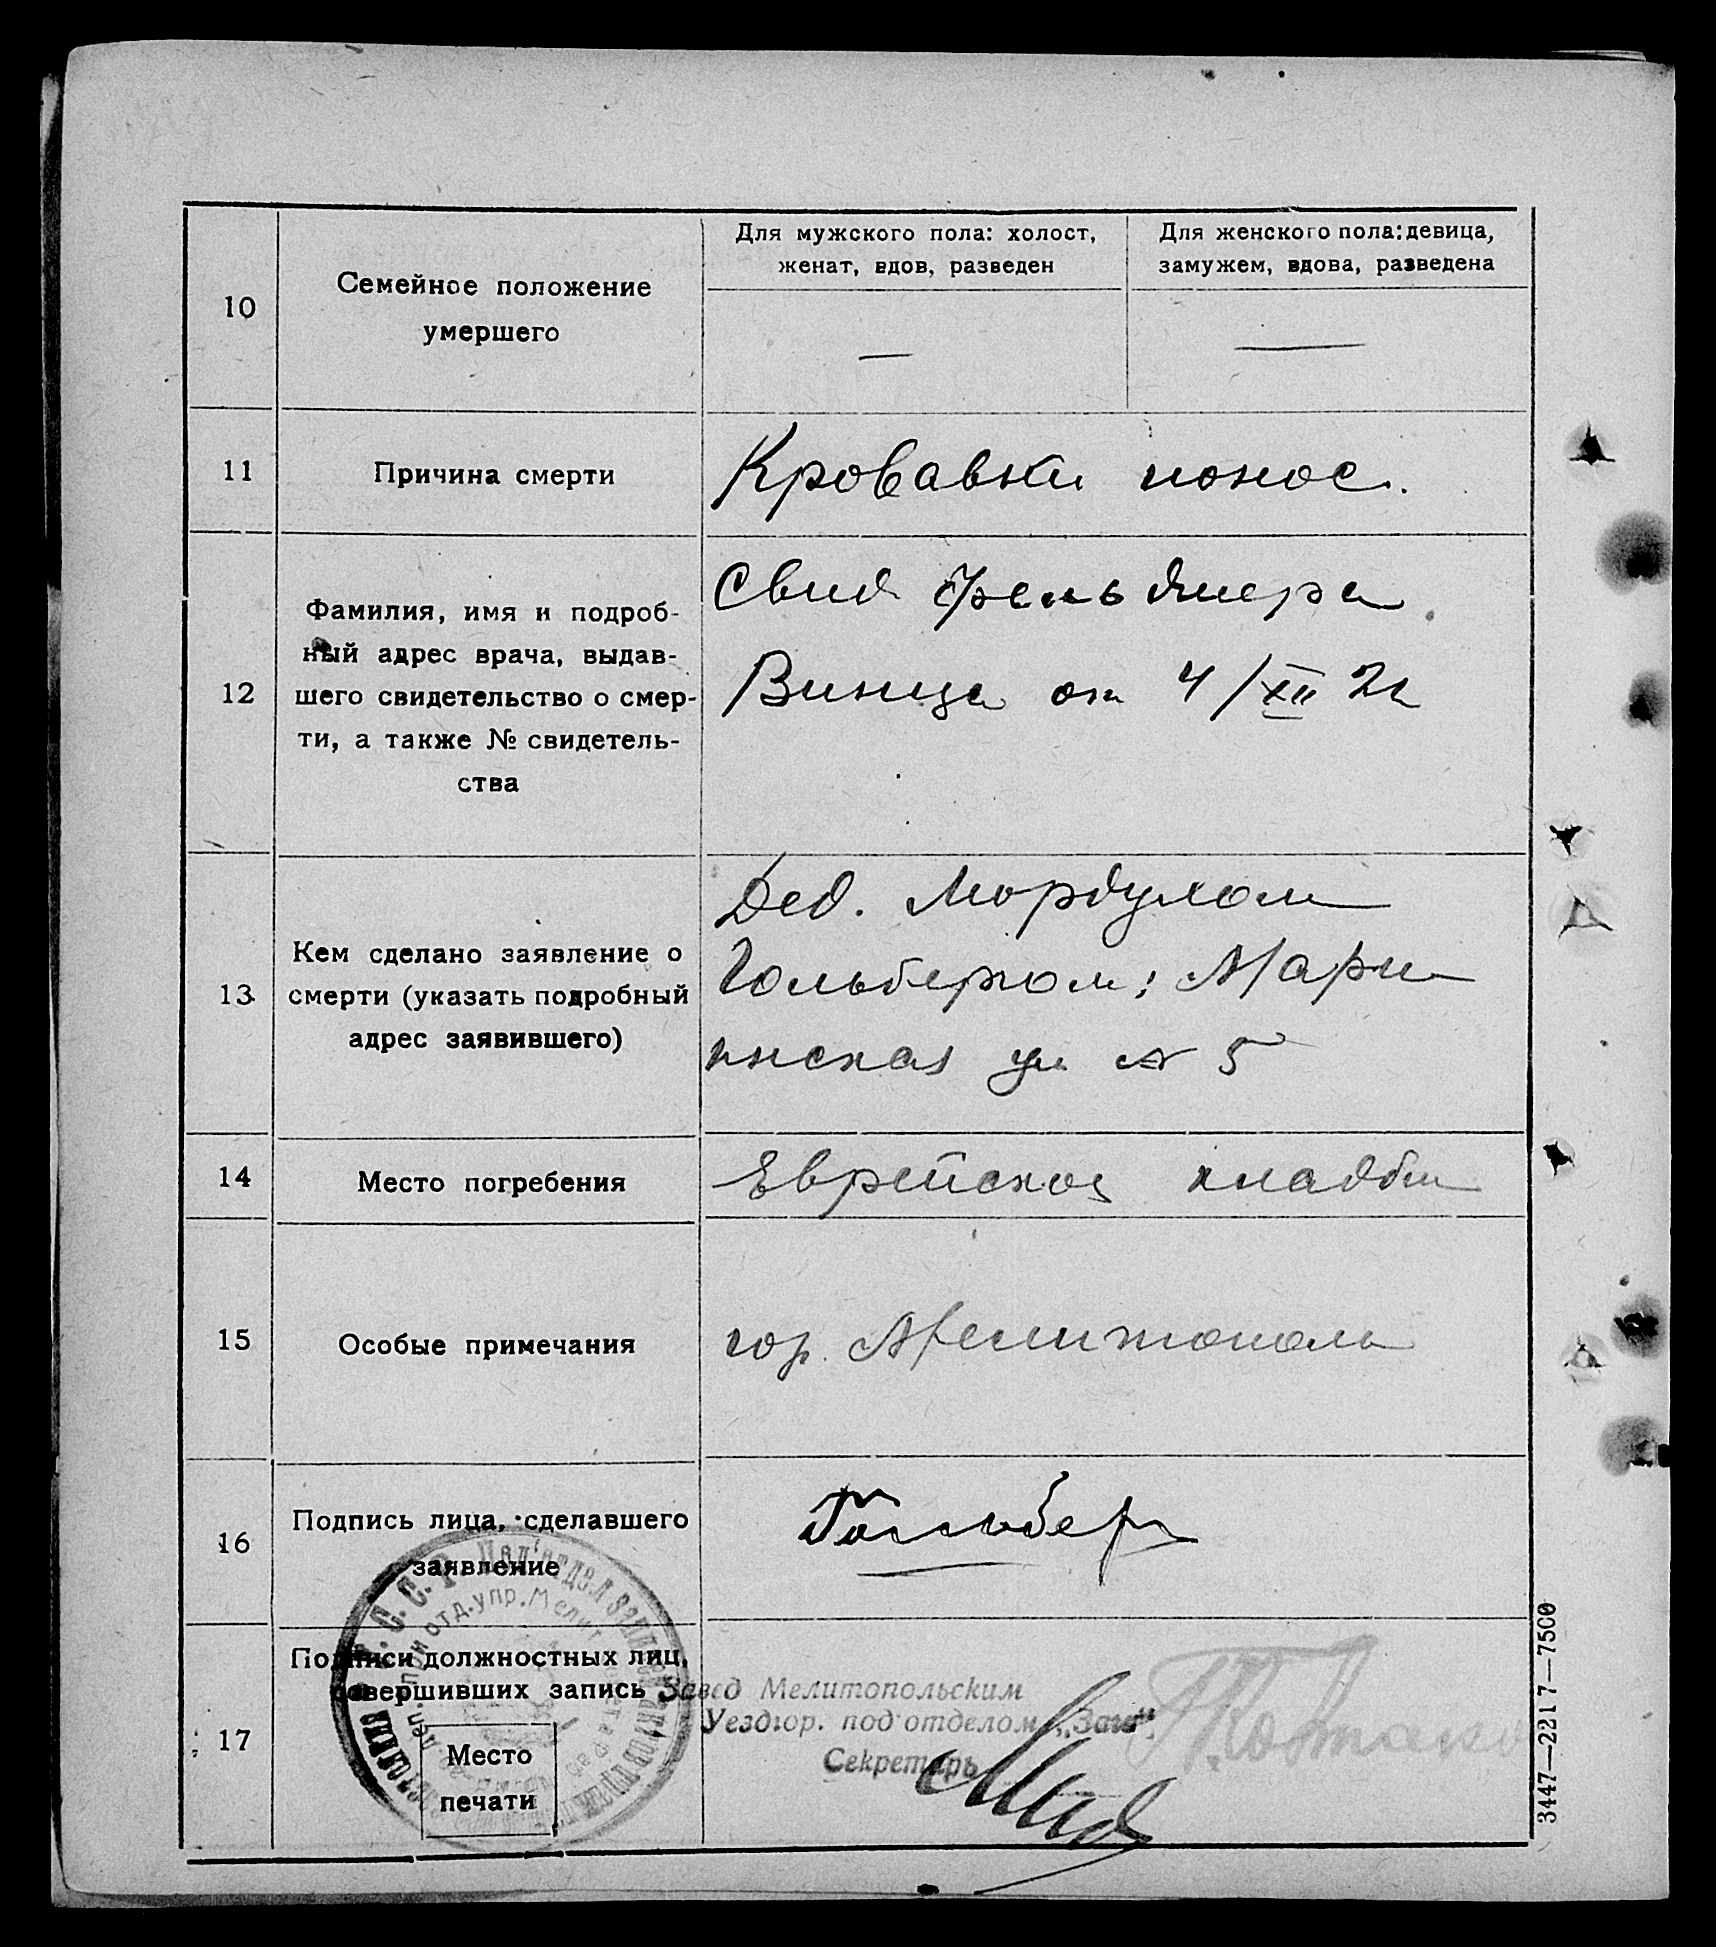 10
Семейное положение
умершего
Для мужского пола: холост,
женат, вдов, разведен
Для женского пола: девица,
замужем, вдова, разведена
—
—
11
Причина смерти
Кровавки понос.
12
Фамилия, имя и подроб-
ный адрес врача, выдав-
шего свидетельство о смер-
ти, а также № свидетель-
ства
Свид Фельдшера
Винца от 4/XII 21
13
Кем сделано заявление о
смерти (указать подробный
адрес заявившего)
Дед. Мордухом
Гольбергом; Мари
инская ул № 5
14
Место погребения
Еврейское кладби
15
Особые примечания
гор. Мелитополь
16
Подпись лица, сделавшего
заявление
Гольберг
17
Подписи должностных лиц,
совершивших запись
Место
печати
Завед Мелитопольским
Уездгор. под'отделом „Загс“.
Секретарь
3447—2217—7500